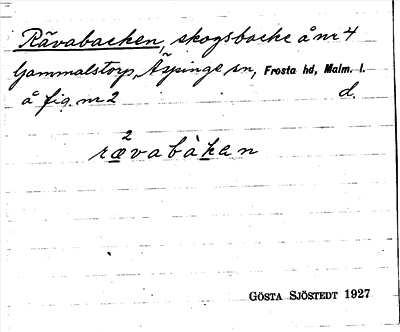 Rävabacken, skogsbacke å nr 4
Gammalstorp, Äspinge sn, Frosta hd, Malm. l.
å fig. nr 2 d.
2
rævabàkan
GÖSTA SJÖSTEDT 1927